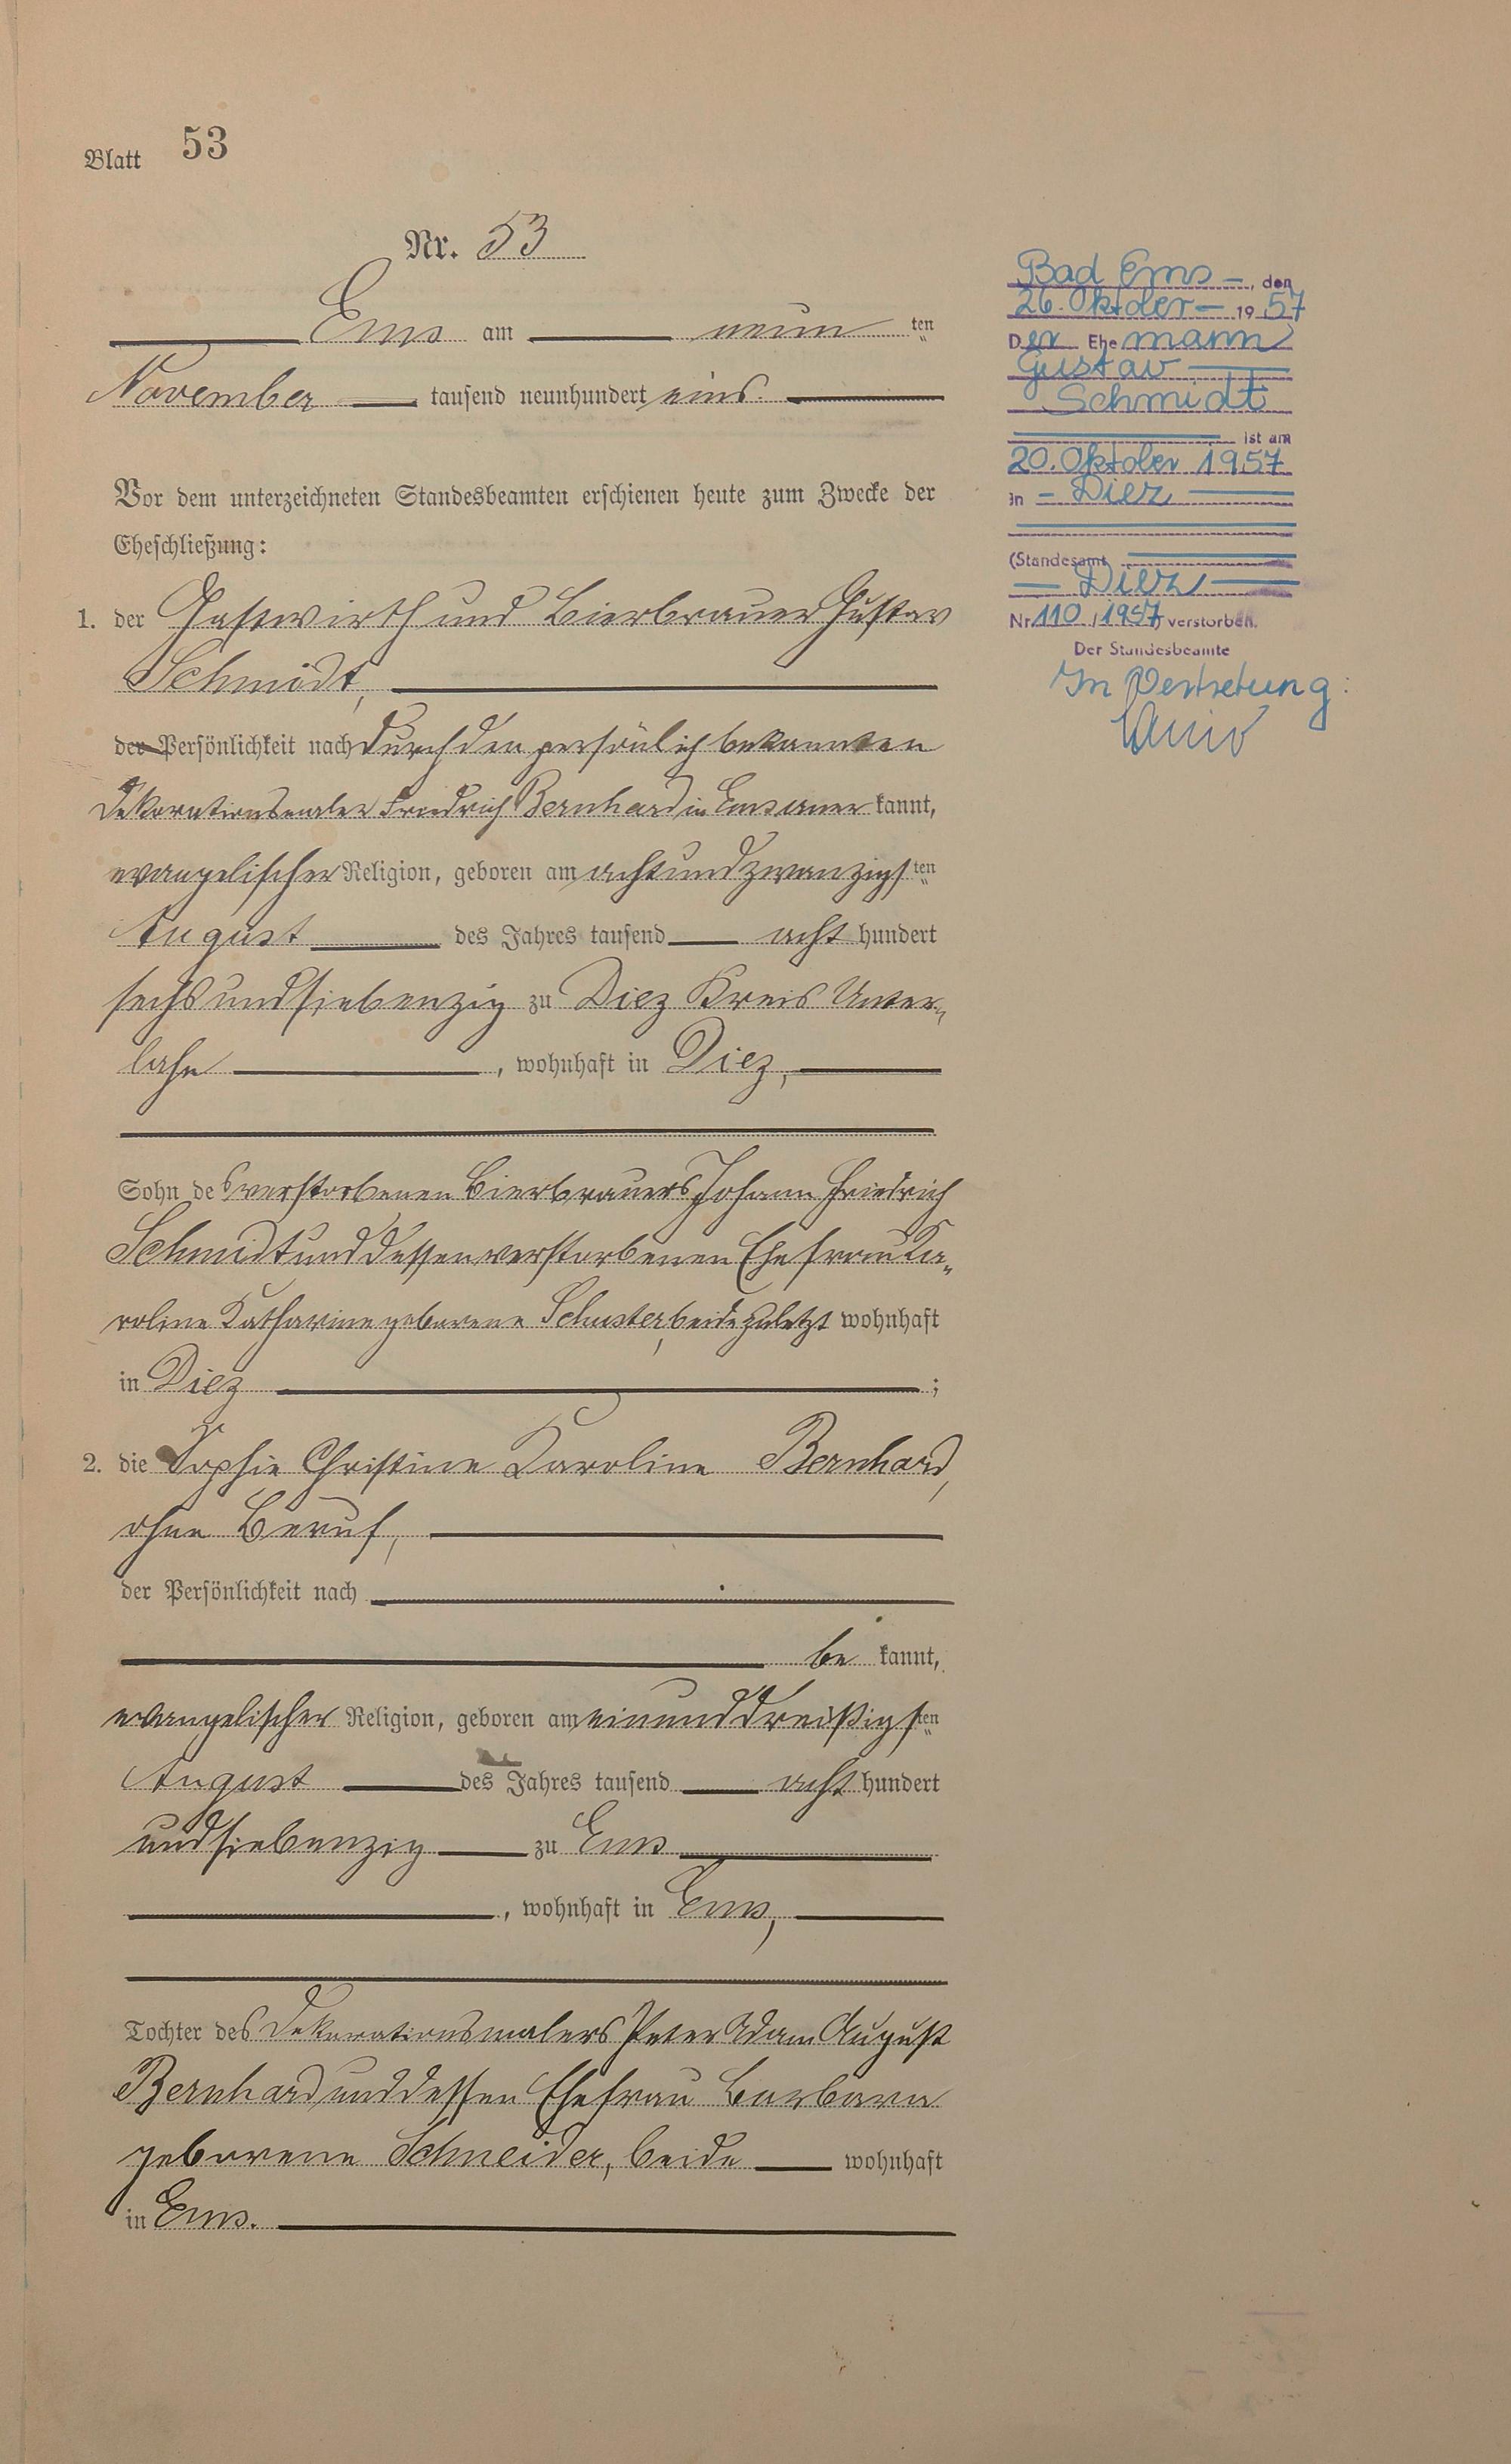 Blatt 53
Nr. 53
Ems am neun ten
November tausend neunhundert eins.
Vor dem unterzeichneten Standesbeamten erschienen heute zum Zwecke der
Eheschließung:
1. der Gastwirth und Bierbrauer Gustav
Schmidt,
der Persönlichkeit nach durch den persönlich bekannten
Dekorationsmaler Friedrich Bernhard in Ems aner kannt,
evangelischer Religion, geboren am achtundzwanzigs ten
August des Jahres tausend acht hundert
sechsundsiebenzig zu Diez Kreis Unter-
lahn, wohnhaft in Diez,
Sohn des verstorbenen Bierbrauers Johann Friedrich
Schmidt und dessen verstorbenen Ehefrau Ka-
roline Katharine geborene Schuster, beide zuletzt wohnhaft
in Diez ;
2. die Sophie Christine Karoline Bernhard,
ohne Beruf,
der Persönlichkeit nach
be kannt,
evangelischer Religion, geboren am einunddreißigs ten
August des Jahres tausend acht hundert
undsiebenzig zu Ems
, wohnhaft in Ems,
Tochter des Dekorationsmalers Peter Adam August
Bernhard und dessen Ehefrau Barbara
geborene Schneider, beide wohnhaft
in Ems.
Bad Ems, den
26. Oktober 1957
Der Ehemann
Gustav
Schmidt
ist am
20. Oktober 1957
in Diez
(Standesamt
Diez
Nr. 110/1957) verstorben.
Der Standesbeamte
In Vertretung: